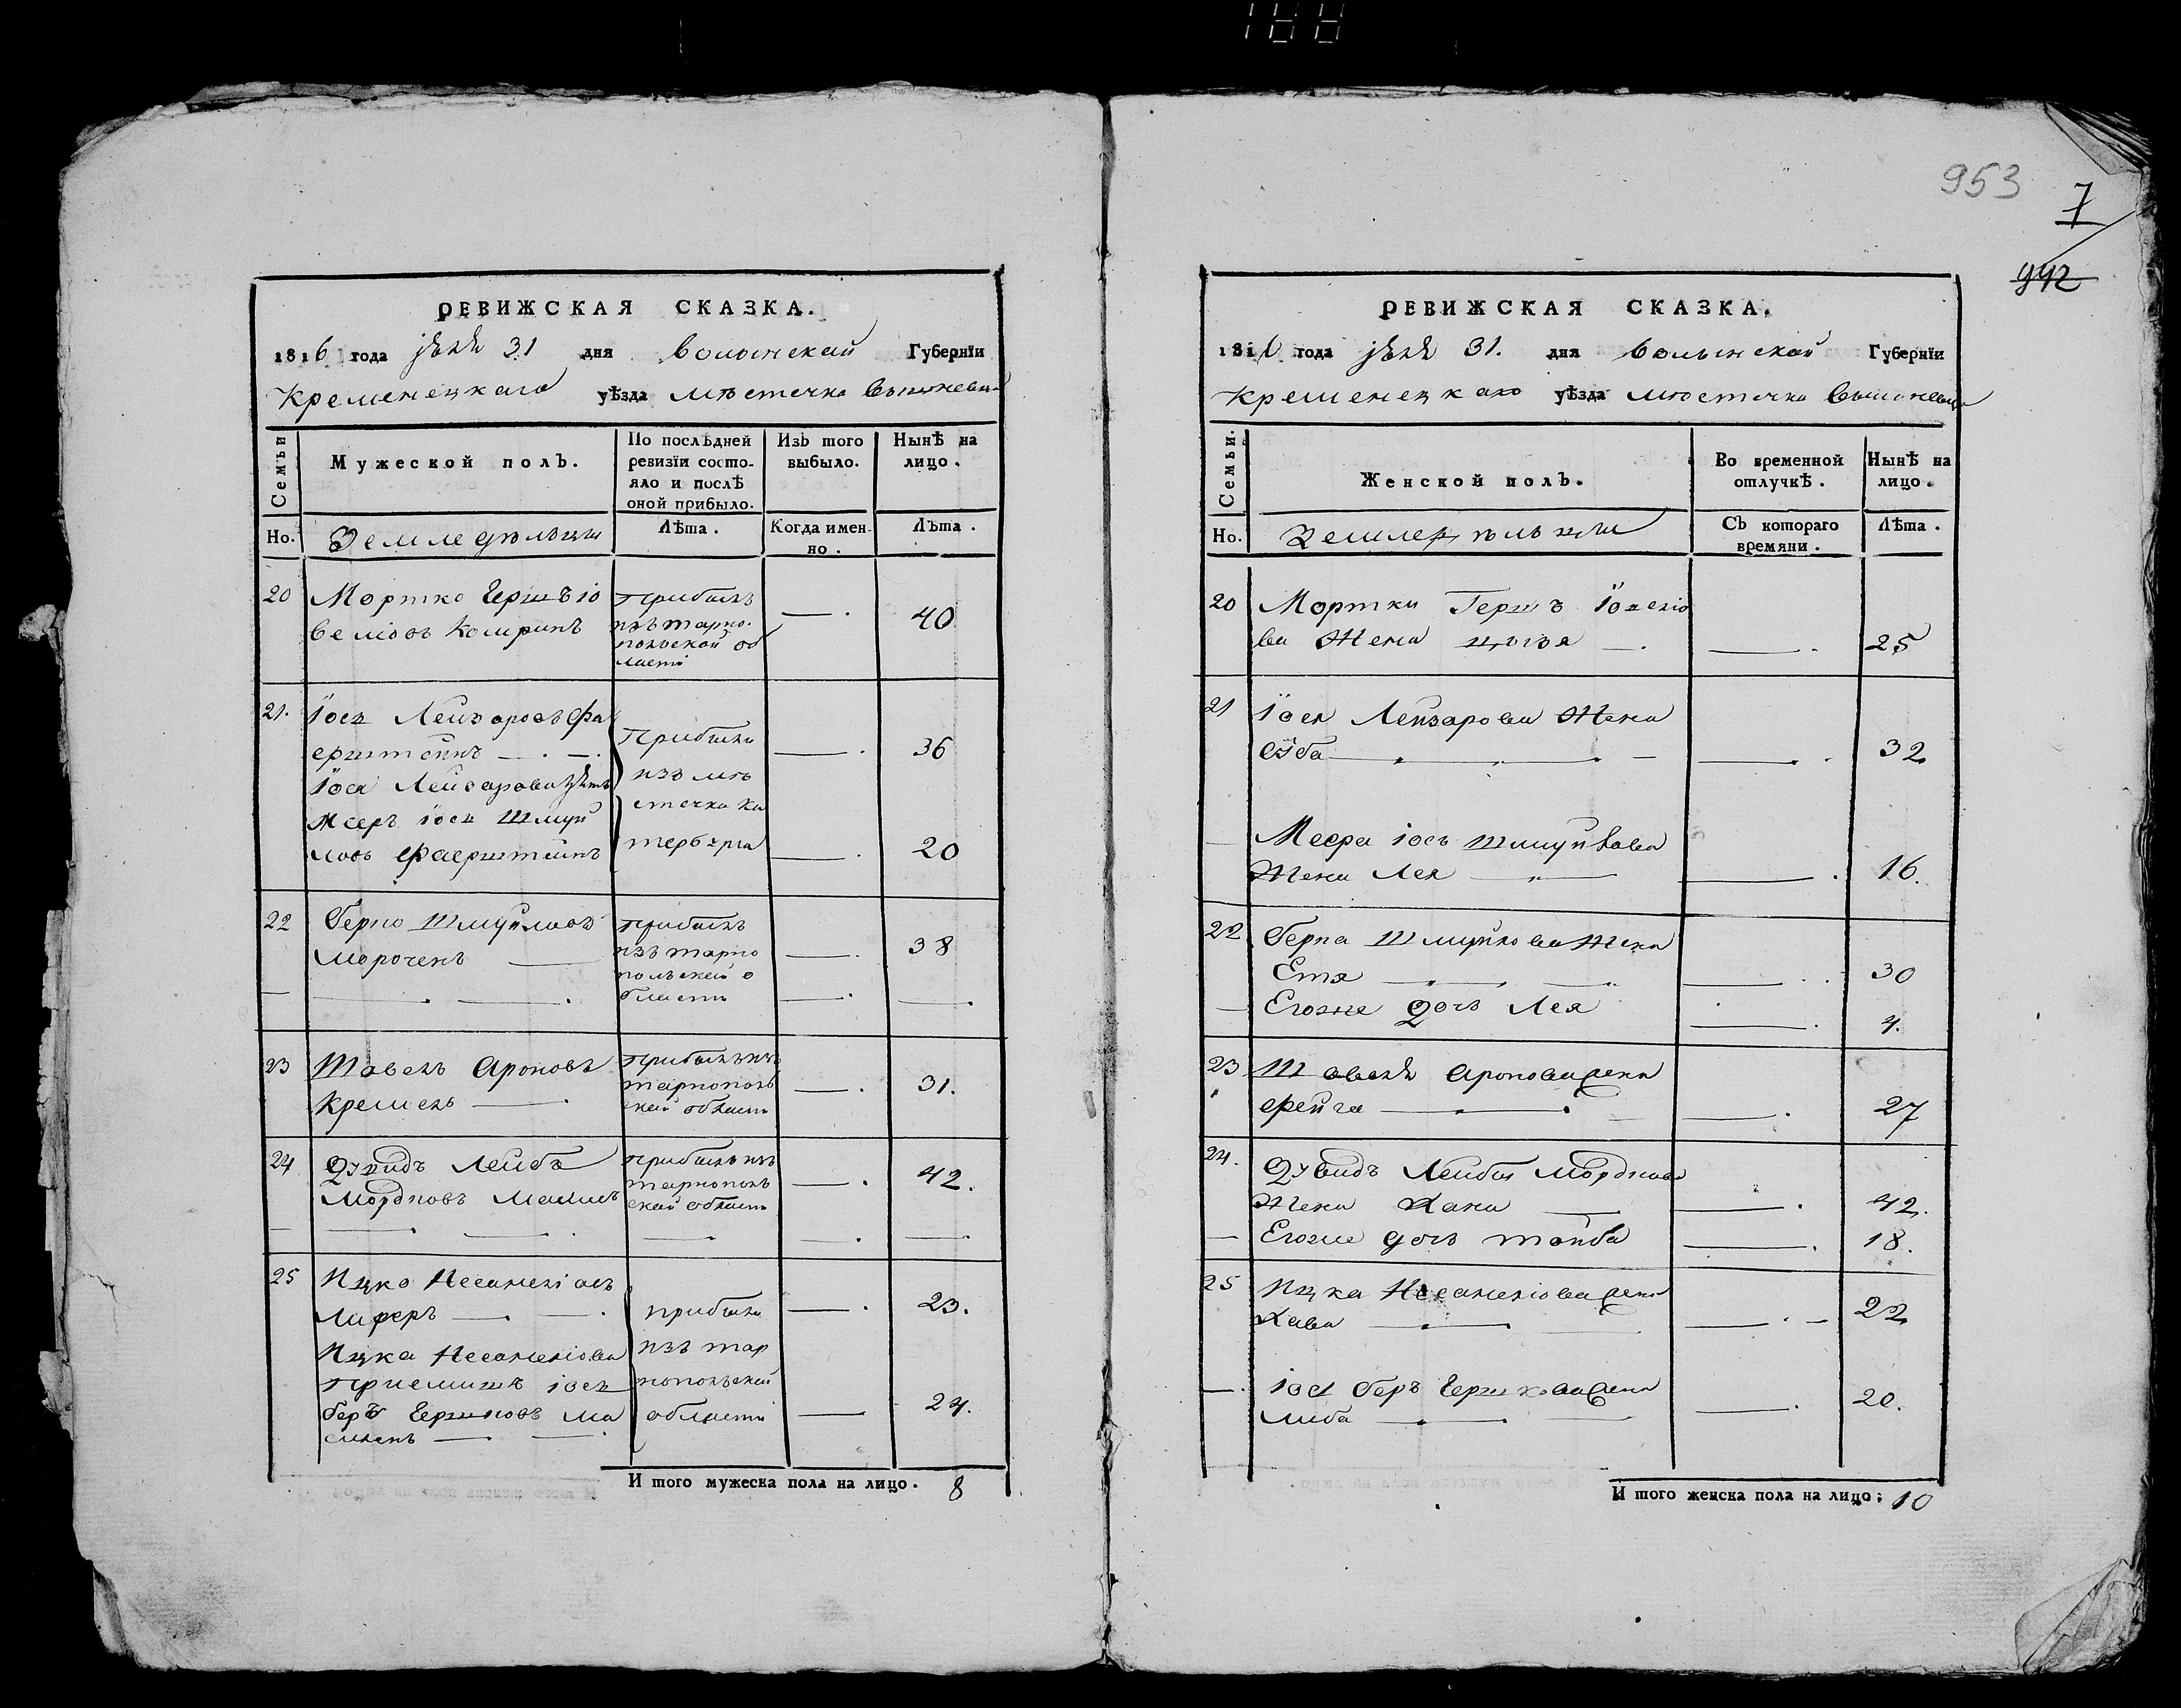 188
РЕВИЖСКАЯ СКАЗКА.
1816 года июля 31 дня Волынской Губернїи
Кременецкаго уѣзда мѣстечка Вышневца
Семъи
Мужеской полъ.
По послѣдней ревизїи состояло и послѣ оной прибыло.
Изъ того выбыло.
Нынѣ на лицо.
Но.
Земледѣльцы
Лѣта.
Когда именно.
Лѣта.
20
Мортко Гершъ Іо
селіовъ
Прибылъ
изъ тарно
польской об
ласти
—
40
21.
Іось Лейзаровъ Фа
ерштейнъ
Іося Лейзарова зять
Мееръ Іось Шмуй
ловъ Фаерштейнъ
Прибыли
изъ мѣ
стечка Ка
тербурга
—
36
—
20
22
Берко Шмуйловъ
Мороченъ
прибылъ
изъ тарно
польской о
бласти
—
38
23
Шавель Ароновъ
Кремень
прибылъ изъ
тарнополь
ской области
—
31.
24
Дувидъ Лейбъ
Мордковъ
прибылъ изъ
тарнополь
ской области
—
42.
25
Ицко Несанеліовъ
Лиферъ
Ицка Несанеліова
приемишъ Іось
Беръ Гершковъ
прибыли
изъ тар
нопольской
области
—
23.
—
24.
И того мужеска пола на лицо. 8
953
7
942
РЕВИЖСКАЯ СКАЗКА.
1816 года июля 31. дня Волынской Губернїи
Кременецкаго уѣзда мѣстечка Вышневца
Семьи.
Женской полъ.
Во временной отлучкѣ.
Нынѣ на лицо.
Но.
Земледѣльцы
Съ котораго времяни.
Лѣта.
20
Мортки Гершъ Іоселіо
ва жена
—
25
21
Іося Лейзарова жена
—
32
Меера Іось Шмуйлова
жена Лея
—
16.
22
Берка Шмуйлова жена
Етя
—
30
Егоже дочь Лея
—
4.
23
Шавеля Аронова жена
Фейга
—
27
24.
Дувидъ Лейбы Мордкова
жена Хана
—
42.
Егоже дочь Тойба
—
18.
25
Ицка Несанеліова жена
Хава
—
22
Іося Беръ Гершкова жена
Либа
—
20.
И того женска пола на лицо: 10